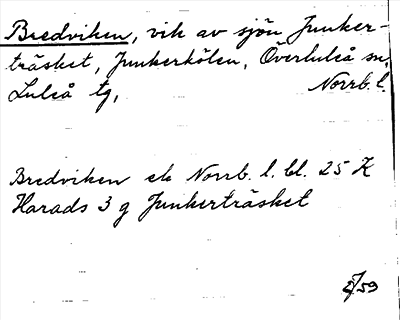 Bredviken, vik av sjön Junker-
träsket, Junkerkölen, Överluleå sn,
Luleå tg, Norrb. l.
Bredviken ek Norrb. l. bl. 25 K
Harads 3 g Junkerträsket